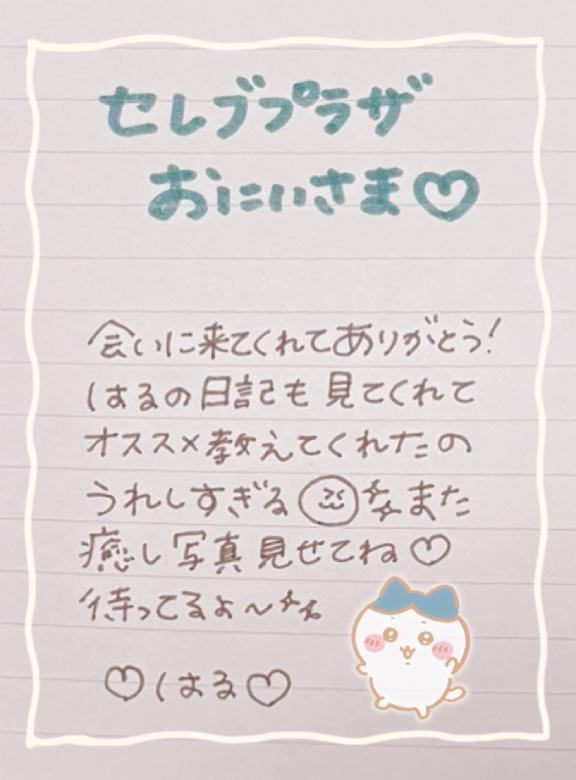 セレブプラザ
おにいさま♡
会いに来てくれてありがとう!
はるの日記も見てくれて
オススメ教えてくれたの
うれしすぎる また
癒し写真見せてね♡
待ってるよ〜
♡はる♡